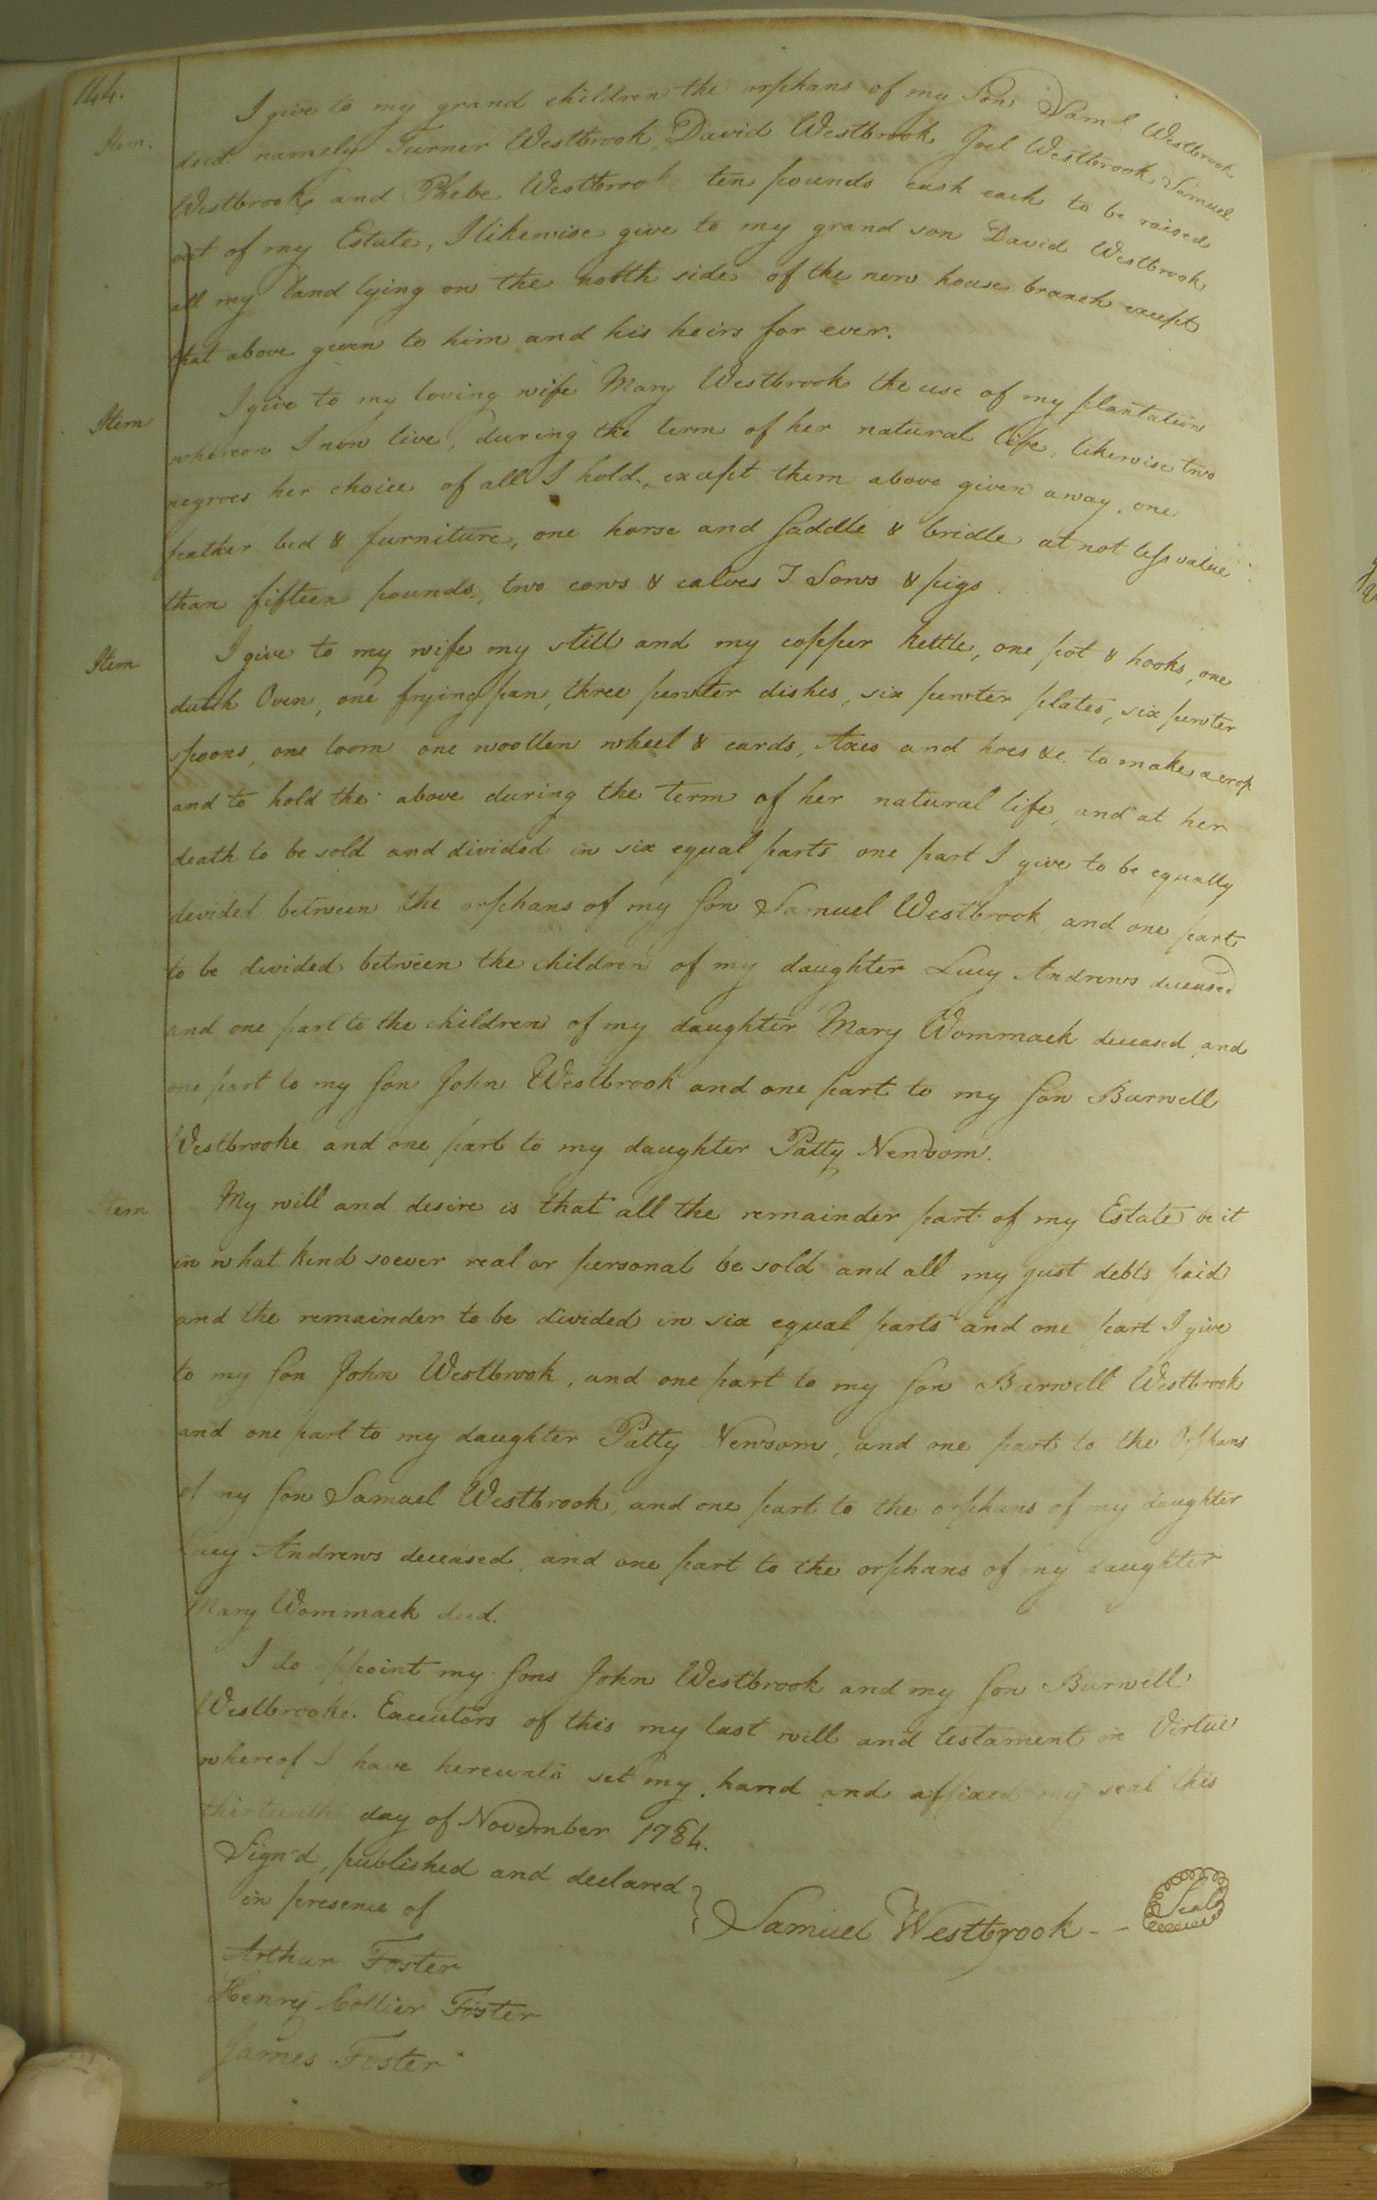 144.
Item. I give to my grand children the orphans of my Son Saml. Westbrook
decd. namely Turner Westbrook, David Westbrook, Joel Westbrook, Samuel
Westbrook, and Phebe Westbrook ten pounds cash each to be raised
out of my Estate, I likewise give to my grand son David Westbrook
all my land lying on the north side of the new house branch except
that above given to him and his heirs for ever.
Item I give to my loving wife Mary Westbrook the use of my plantation
whereon I now live, during the term of her natural life, likewise two
negroes her choice of all I hold, except them above given away, one
feather bed & furniture, one horse and saddle & bridle at not less value
than fifteen pounds, two cows & calves Sows & pigs.
Item I give to my wife my still and my copper kettle, one pot & hooks, one
dutch Oven, one frying pan, three pewter dishes, six pewter plates, six pewter
spoons, one loom one woollen wheel & cards, Axes and hoes &c. to make a crop
and to hold the above during the term of her natural life, and at her
death to be sold and divided in six equal parts one part I give to be equally
divided between the orphans of my son Samuel Westbrook and one part
to be divided between the children of my daughter Lucy Andrews deceased
and one part to the children of my daughter Mary Wommack deceased, and
one part to my son John Westbrook and one part to my son Burwell
Westbrooke and one part to my daughter Patty Newsom.
Item My will and desire is that all the remainder part of my Estate be it
in what kind soever real or personal be sold and all my just debts paid
and the remainder to be divided in six equal parts and one part I give
to my son John Westbrook, and one part to my son Burwell Westbrook
and one part to my daughter Patty Newsom, and one part to the Orphans
of my son Samuel Westbrook, and one part to the orphans of my daughter
Lucy Andrews deceased, and one part to the orphans of my daughter
Mary Wommack decd.
I do appoint my sons John Westbrook and my son Burwell
Westbrooke. Executors of this my last will and testament in Virtue
whereof I have hereunto set my hand and affixed my seal this
thirteenth day of November 1784.
Sign'd, published and declared
in presence of
Samuel Westbrook -- Seal
Arthur Foster
Henry Collier Foster
James Foster